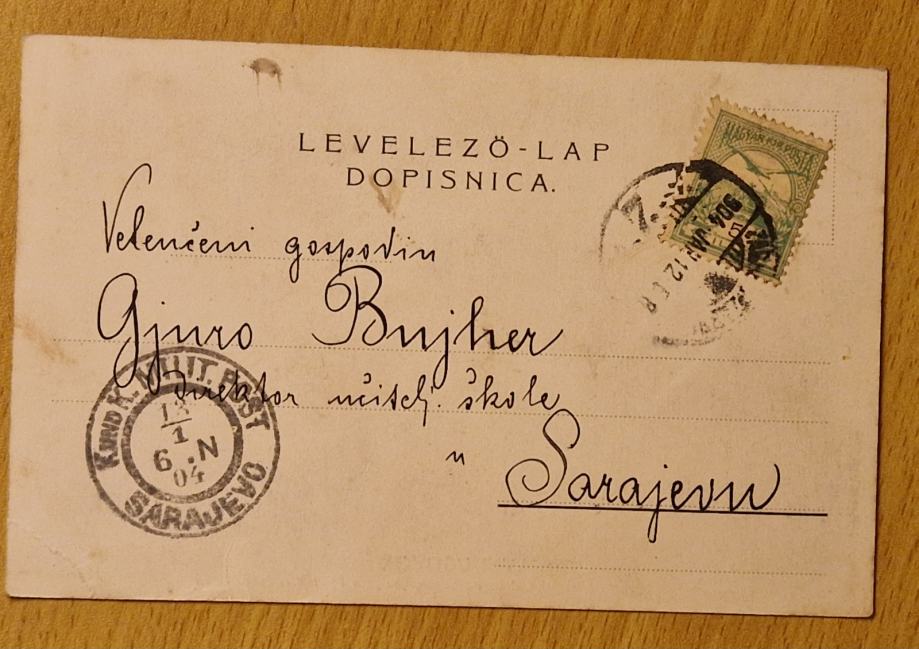 LEVELEZŐ-LAP
DOPISNICA.
MAGYAR KIR. POSTA
904 JAN 12
Velenčeni gospodin
Gjuro Bujher
direktor učitelj. škole
u Sarajevu
K. UND K. MILIT. POST
1
6 . N
04
SARAJEVO